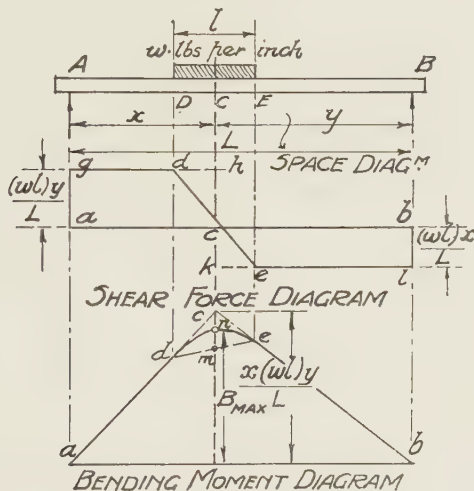 l
w. lbs per inch
A B
D C E
x y
L
SPACE DIAGM
g d h
(wl)y
L
a c b
(wl)x
L
k e l
SHEAR FORCE DIAGRAM
c
n
d e
m
x(wl)y
L
BMAX
a b
BENDING MOMENT DIAGRAM